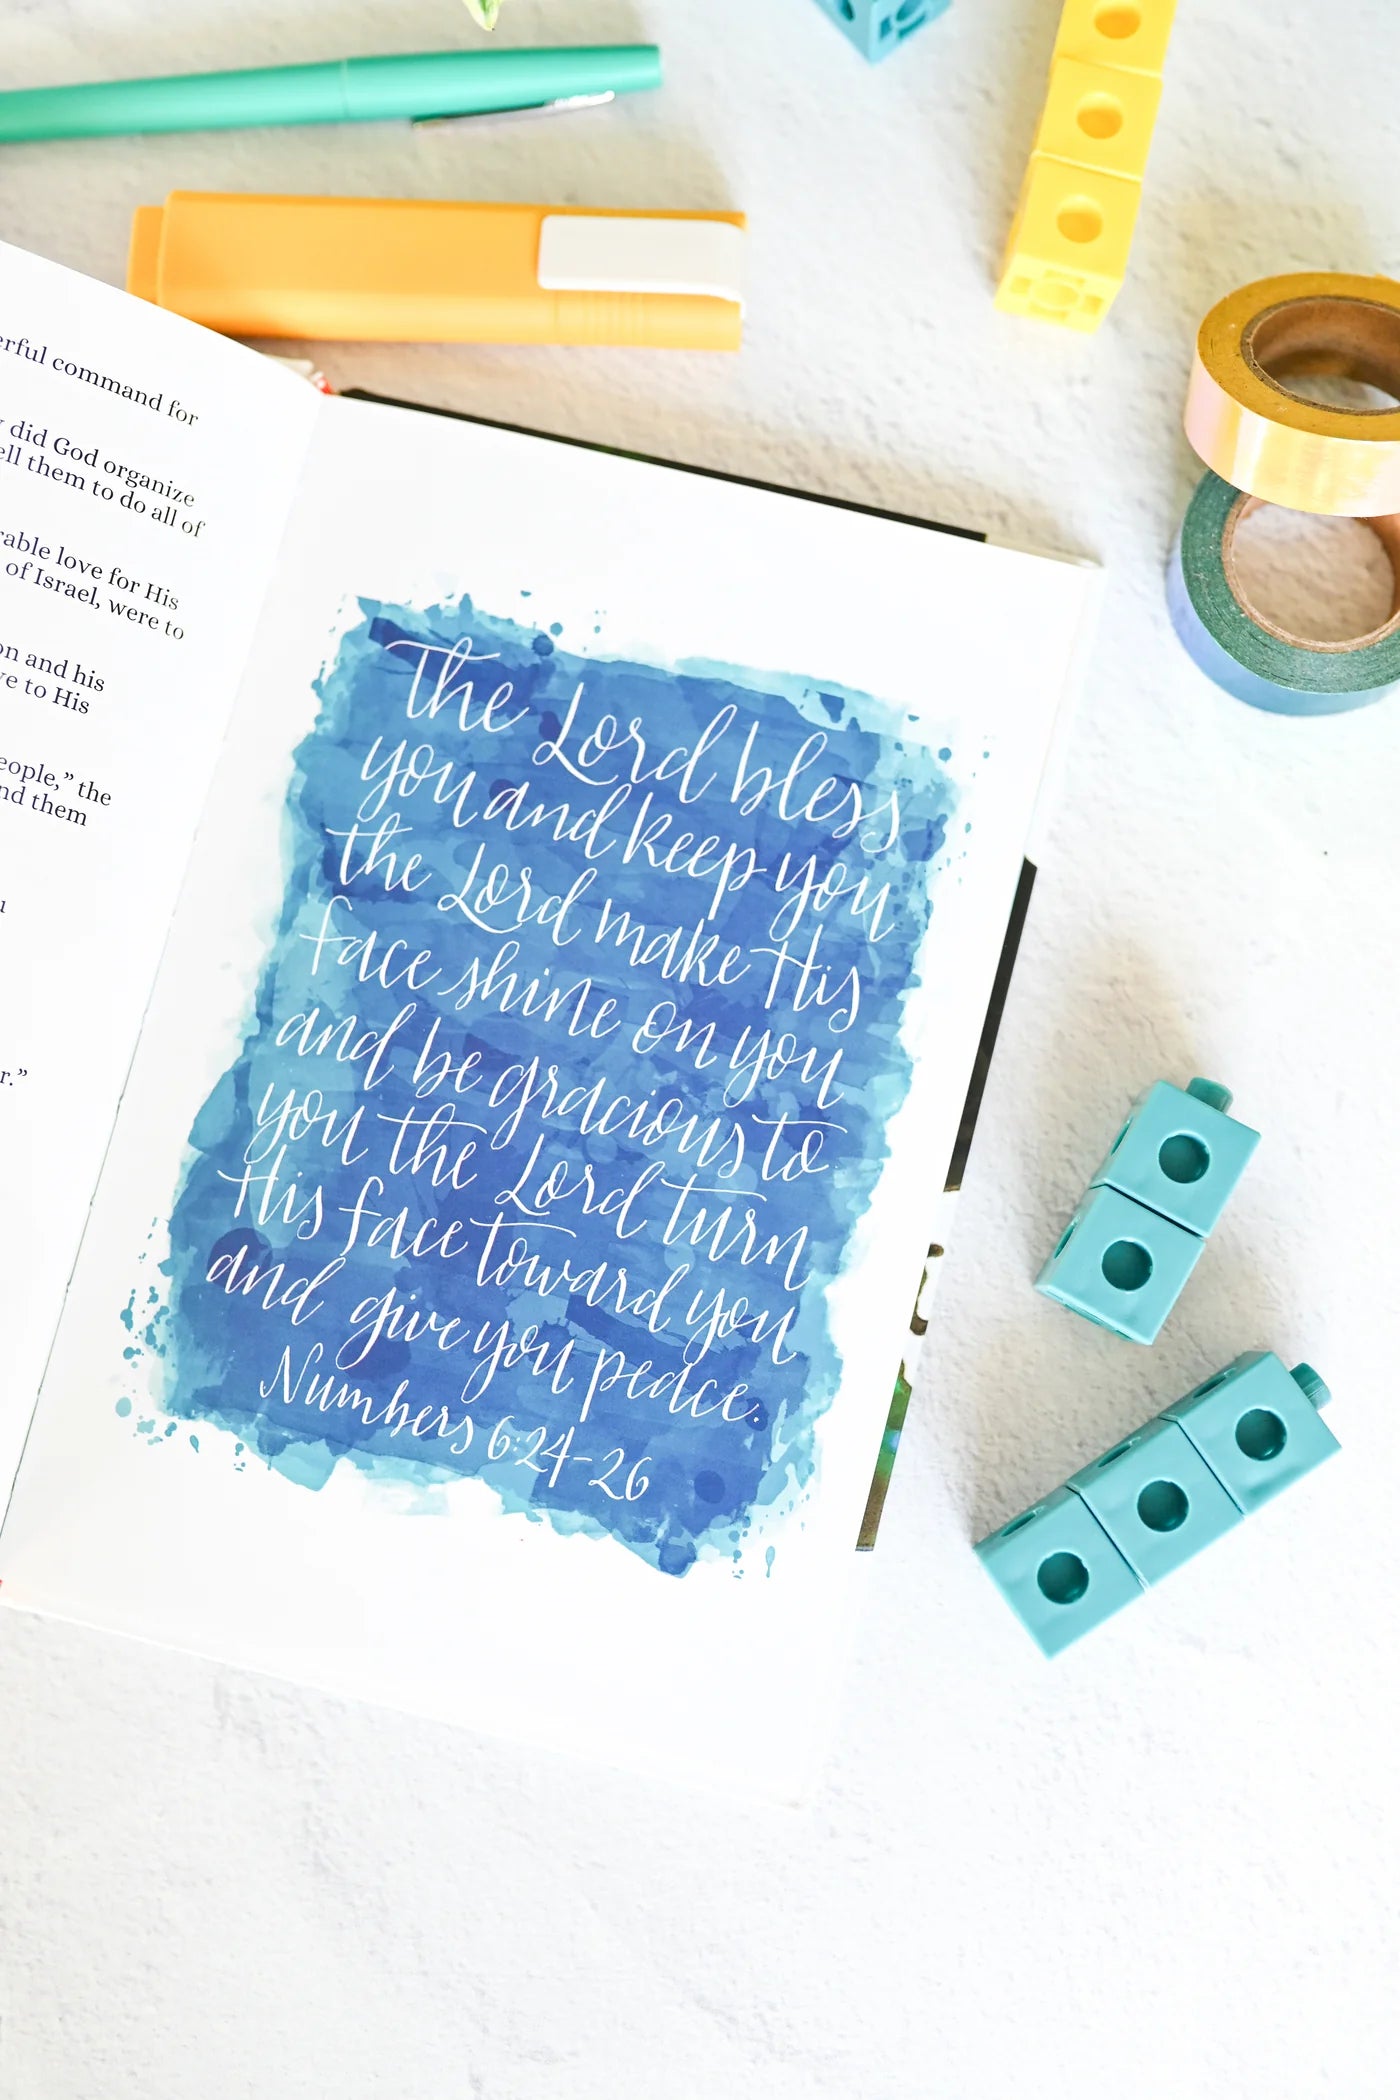 erful command for
did God organize
ell them to do all of
rable love for His
of Israel, were to
on and his
ve to His
eople,” the
nd them
r.”
The Lord bless
you and keep you
the Lord make His
face shine on you
and be gracious to
you the Lord turn
His face toward you
and give you peace.
Numbers 6:24-26